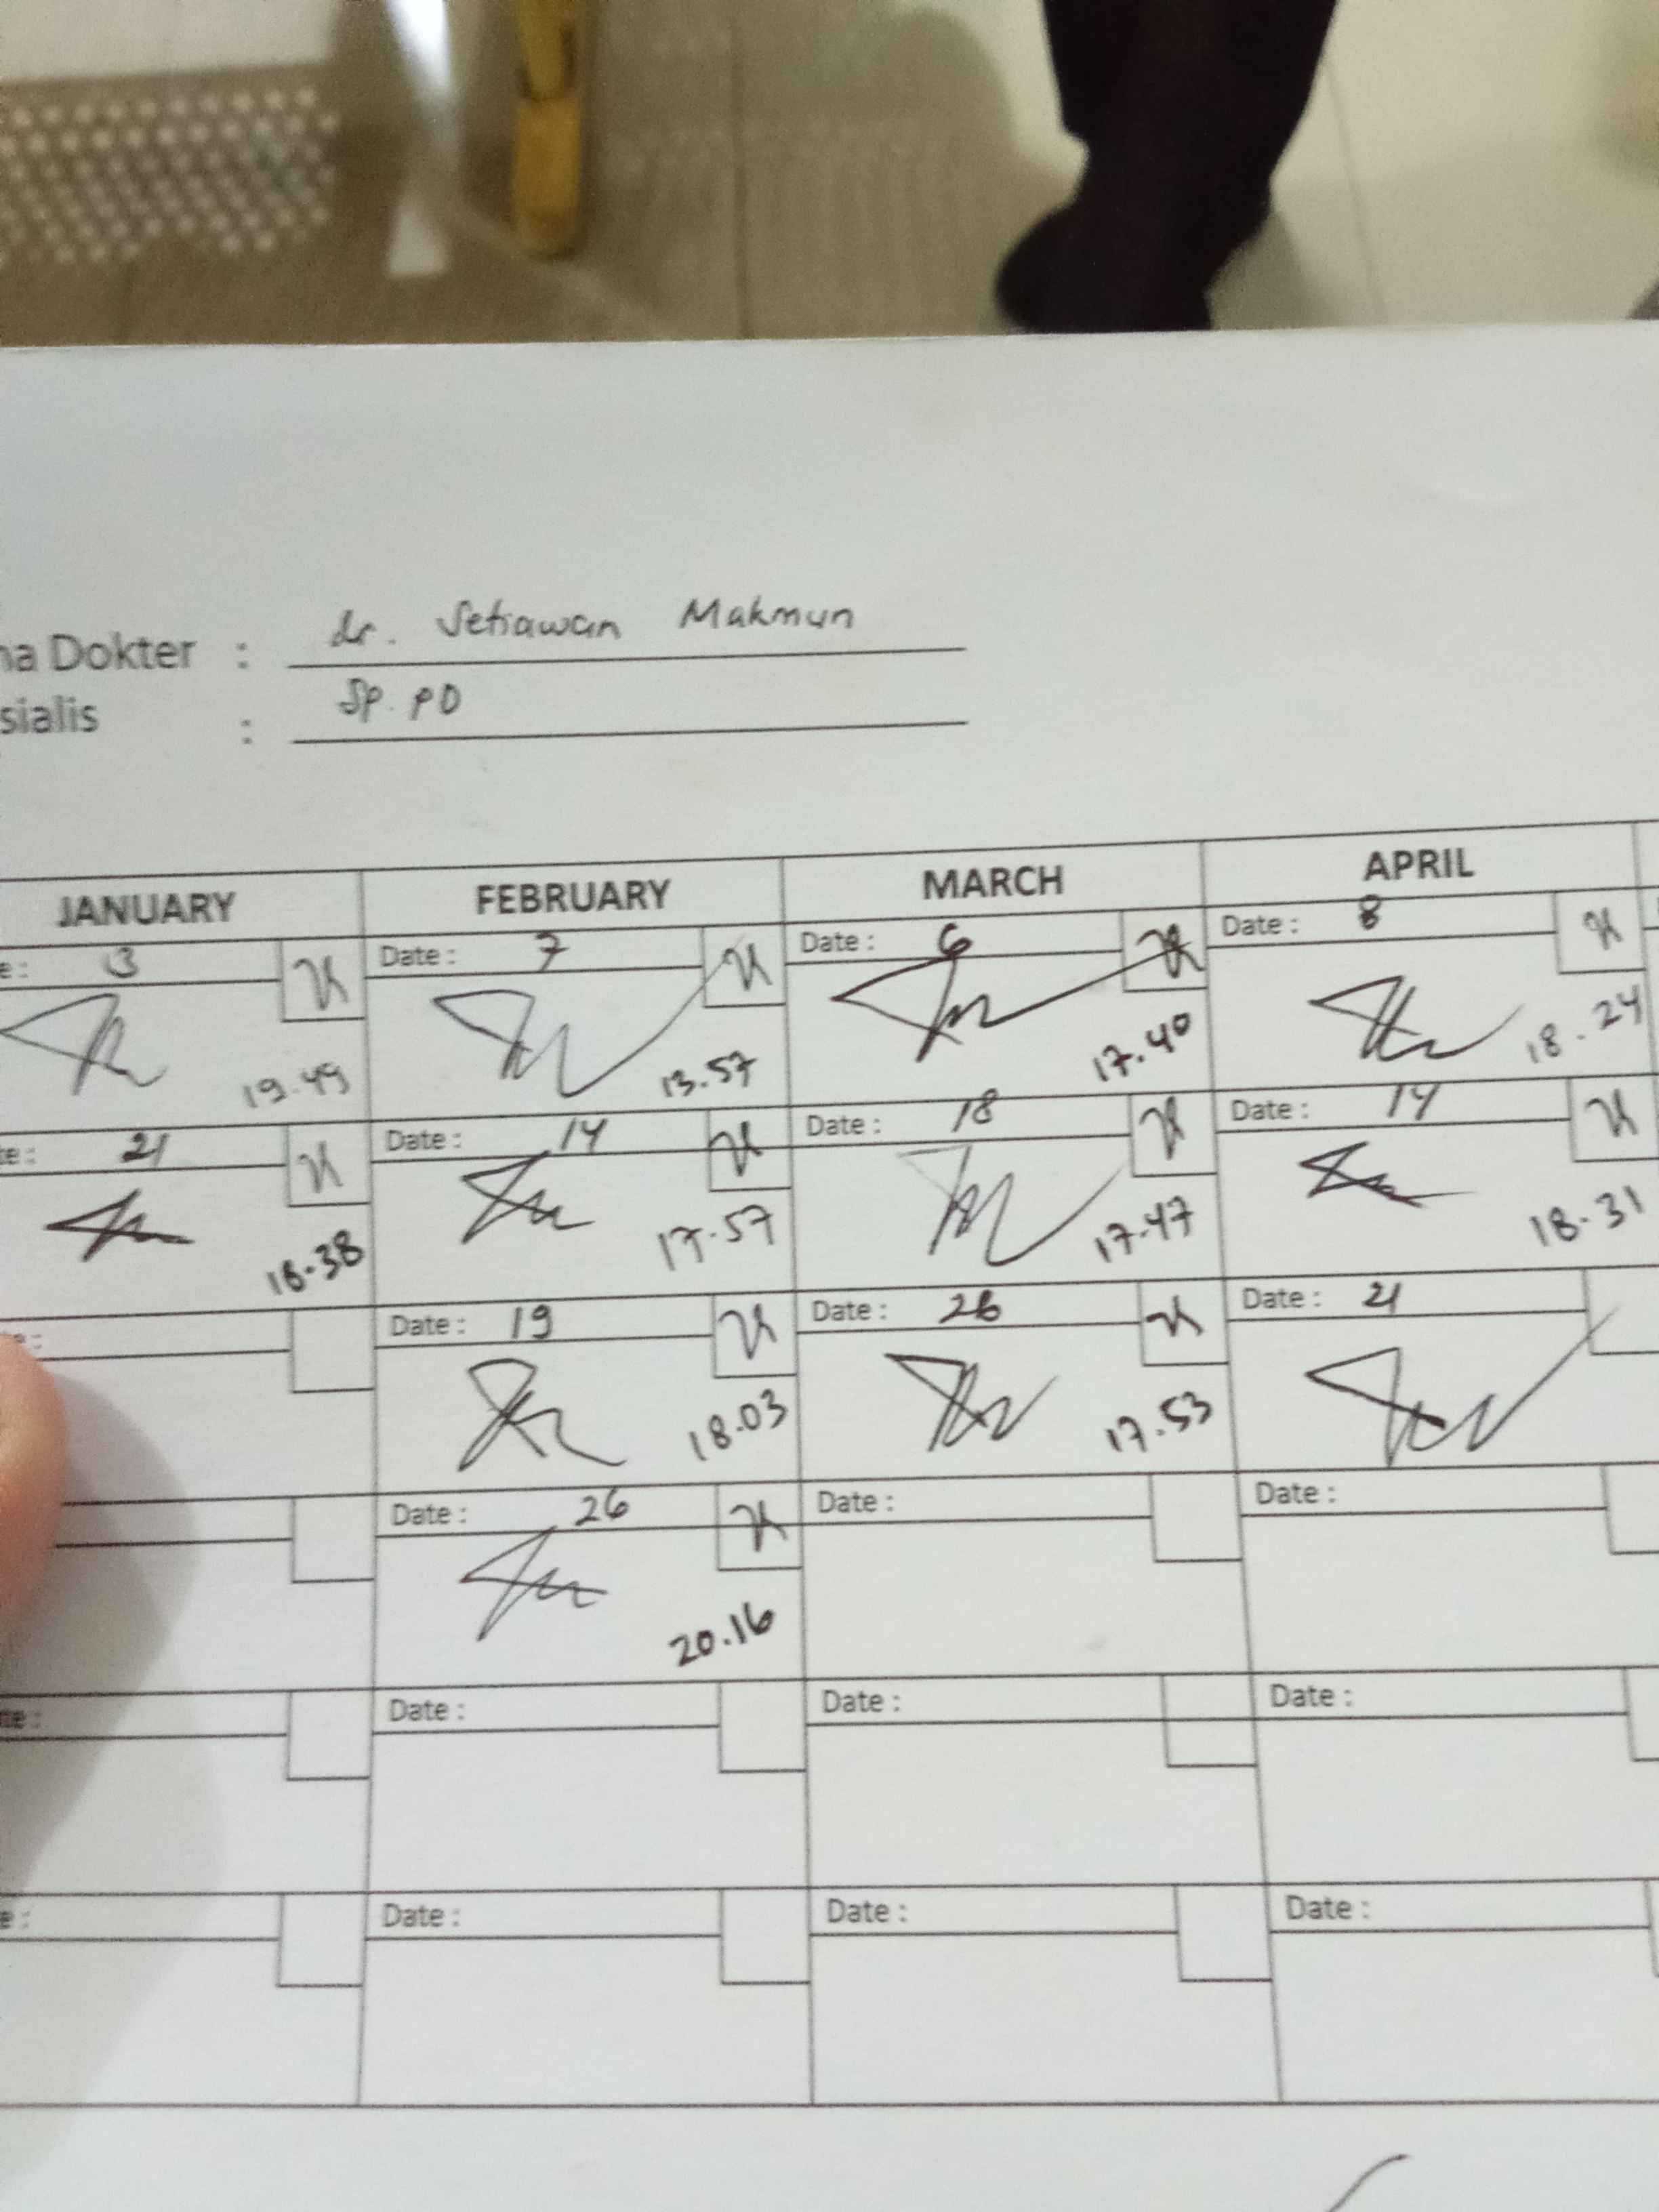 na Dokter : dr. Setiawan Makmun
sialis : Sp. PD
JANUARY FEBRUARY MARCH APRIL
e : 3 Date : 7 Date : 6 Date : 8
19.49 13.57 17.40 18.24
te : 21 Date : 14 Date : 18 Date : 14
18.38 17.57 17.47 18.31
e : Date : 19 Date : 26 Date : 21
18.03 17.53
Date : 26 Date : Date :
20.16
te : Date : Date : Date :
e : Date : Date : Date :